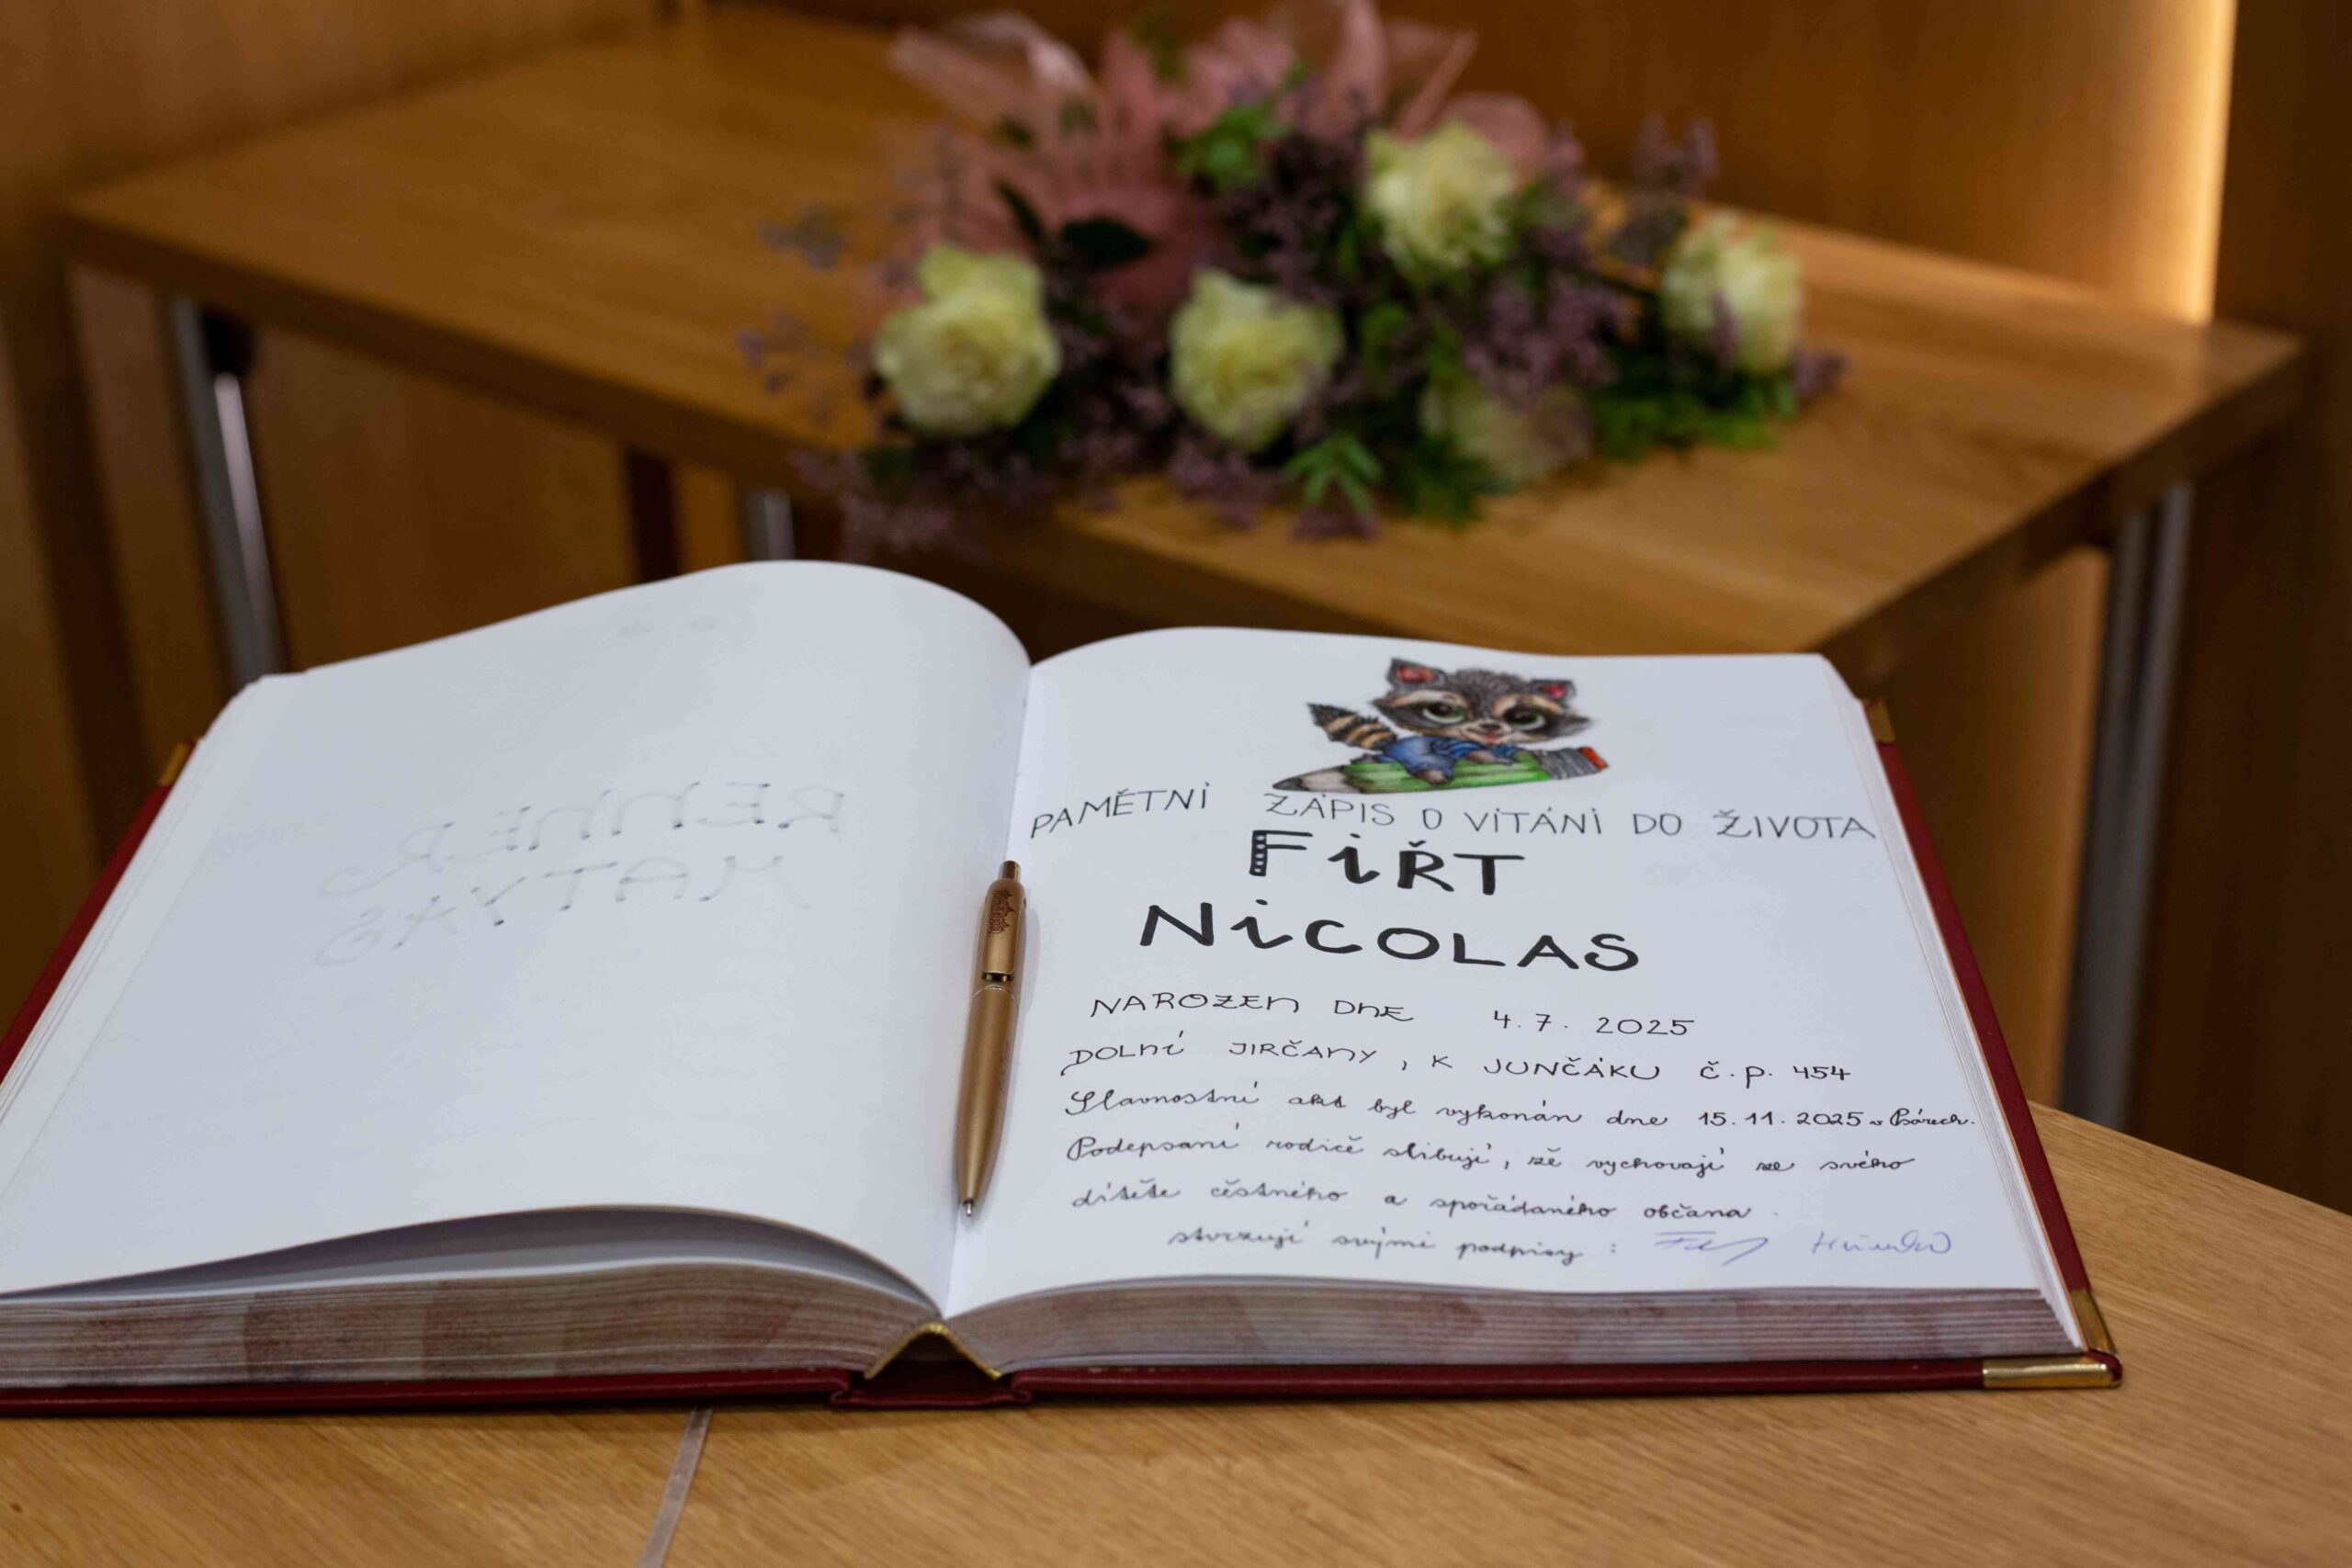 RENNER
MATYÁŠ
PAMĚTNÍ ZÁPIS O VÍTÁNÍ DO ŽIVOTA
FIŘT
NICOLAS
NAROZEN DNE 4.7. 2025
DOLNÍ JIRČANY, K JUNČÁKU Č.P. 454
Slavnostní akt byl vykonán dne 15.11.2025 v Psárech.
Podepsaní rodiče slibují, že vychovají ze svého
dítěte čestného a spořádaného občana.
stvrzují svými podpisy :